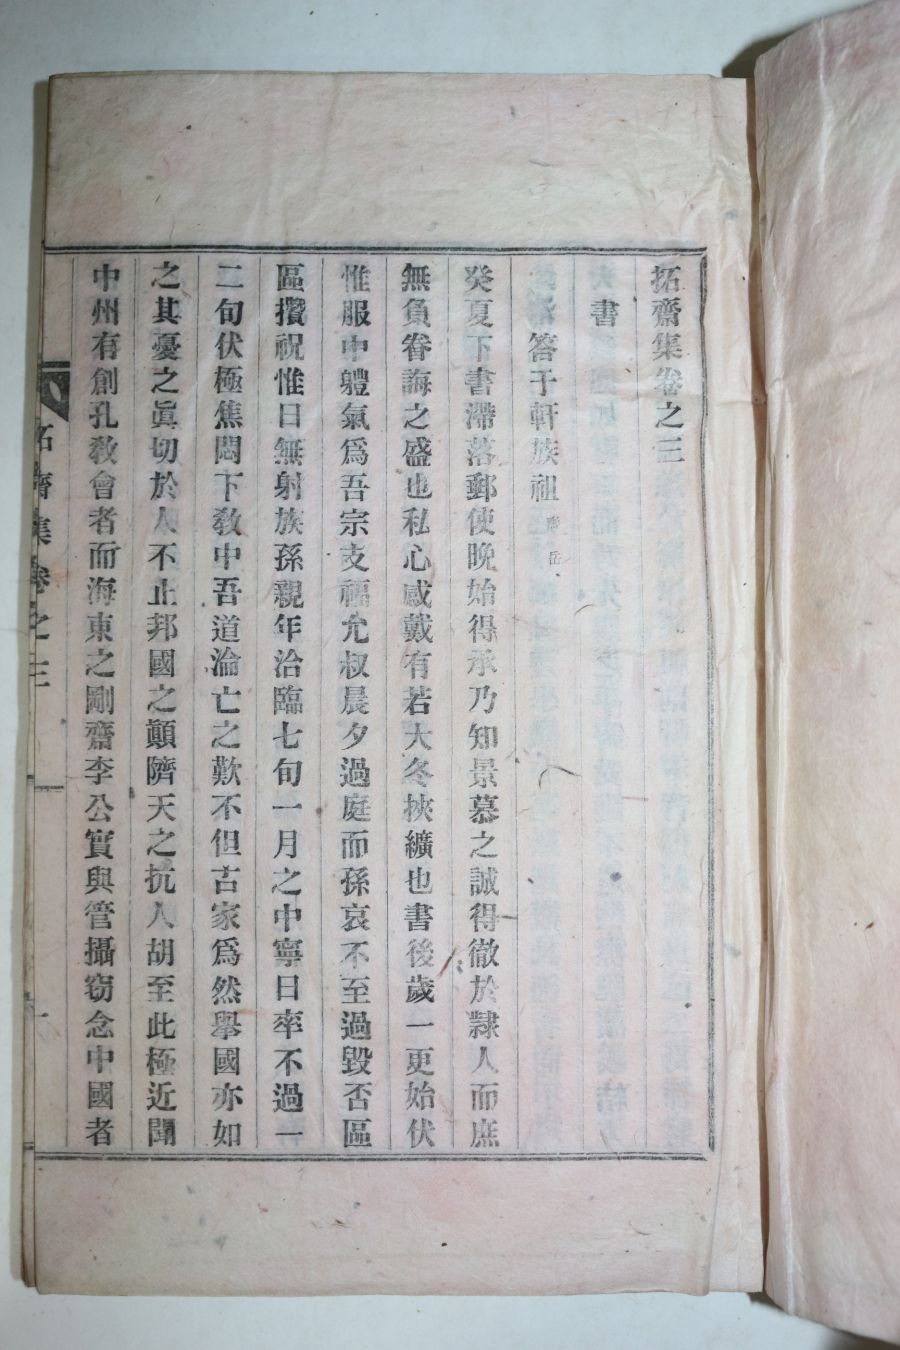 拓齋集卷之三
書
答于軒族祖
癸夏下書滯落郵使晚始得承乃知景慕之誠得徹於隷人而庶
無負眷誨之盛也私心感戴有若大冬挾纊也書後歲一更始伏
惟服中軆氣爲吾宗支福允叔晨夕過庭而孫哀不至過毀否區
區攢祝惟日無射族孫親年洽臨七旬一月之中寧日率不過一
二旬伏極焦悶下敎中吾道淪亡之歎不但古家爲然擧國亦如
之其憂之眞切於人不止邦國之顚隮天之抗人胡至此極近聞
中州有創孔敎會者而海東之剛齋李公實與管攝窃念中國者
拓齋集卷之三
一